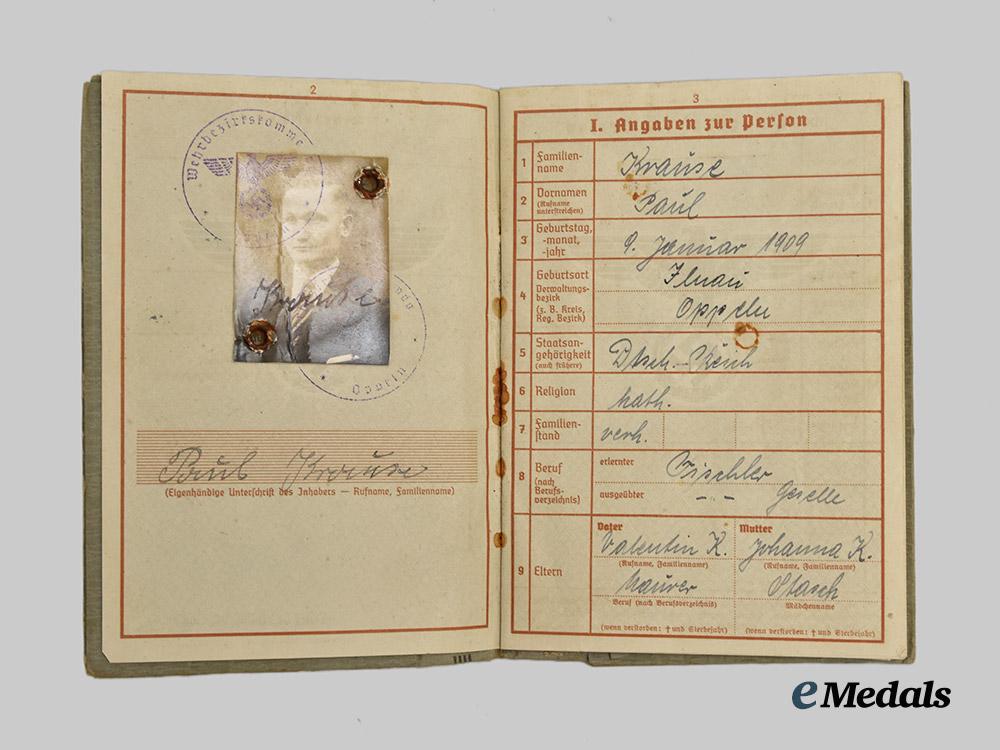 2
Wehrbezirkskomma
Krause
Oppeln
Paul Krause
(Eigenhändige Unterschrift des Inhabers — Rufname, Familienname)
3
I. Angaben zur Person
1 Familien-
name
Krause
2 Vornamen
(Rufname
unterstreichen)
Paul
3 Geburtstag,
-monat,
-jahr
9. Januar 1909
4 Geburtsort
Verwaltungs-
bezirk
(z. B. Kreis,
Reg. Bezirk)
Ilnau
Oppeln
5 Staatsan-
gehörigkeit
(auch frühere)
Dtsch. Reich
6 Religion
kath.
7 Familien-
stand
verh.
8 Beruf
(nach
Berufs-
verzeichnis)
erlernter
Tischler
ausgeübter
-„- Geselle
9 Eltern
Vater
Valentin K.
(Rufname, Familienname)
Maurer
Beruf (nach Berufsverzeichnis)
(wenn verstorben: † und Sterbejahr)
Mutter
Johanna K.
(Rufname, Familienname)
Stasch
Mädchenname
(wenn verstorben: † und Sterbejahr)
eMedals